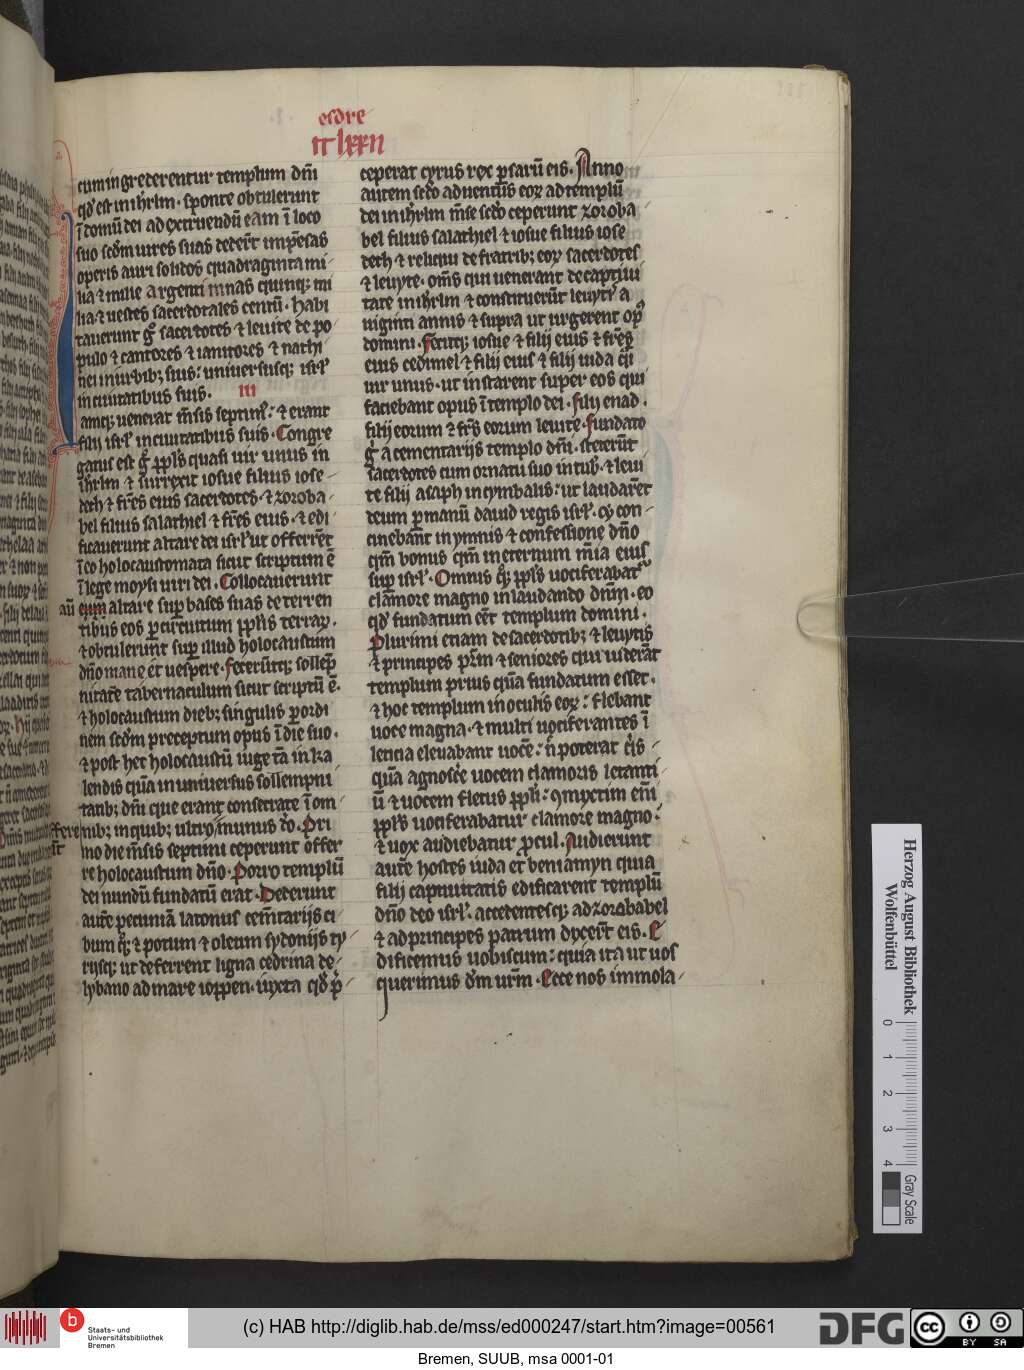 esdre
cum ingrederentur templum dñi
qd̓ est in ih̓rlm · sponte obtulerunt
ī domū dei ad extruendū eam ī loco
suo scd̓m uires suas dedert̄ impensas
operis auri solidos quadraginta mi
lia ⁊ mille argenti mnas quinqꝫ mi
lia ⁊ uestes sacerdotales centū · habi
tauerunt g̊ sacerdotes ⁊ leuite de po
pulo ⁊ cantores ⁊ ianitores ⁊ nathi
nei in urbibꝫ suis: uniuersusqꝫ isrl̓
in ciuitatibus suis. III
amqꝫ uenerat m̄sis septim̄: ⁊ erant
filij isrl̓ in ciuitatibus suis · Congre
gatus est g̊ ppl̓s quasi uir unus in
ih̓rlm ⁊ surrexit iosue filius iose
dech ⁊ fr̄es eius sacerdotes · ⁊ zoroba
bel filius salathiel ⁊ fr̄es eius · ⁊ edi
ficauerunt altare dei isrl̓ ut offerrēt
ī eo holocaustomata sicut scriptum ē
ī lege moysi uiri dei · Collocauerunt
aū eum altare sup̱ bases suas deterren
tibus eos p̱ circuitum ppl̓is terraꝝ ·
⁊ obtulerunt sup̱ illud holocaustum
dño mane et uespere · fecerūtqꝫ sollēp
nitatē tabernaculum sicut scriptū ē ·
⁊ holocaustum diebꝫ singulis p̱ ordi
nem scd̓m preceptum opus ī die suo ·
⁊ post hec holocaustū iuge tā in ka
lendis quā in uniuersus sollempni
tatibꝫ dñi que erant consecrate ī om
nibꝫ in quibꝫ ultro munus dō · Pri
mo die m̄sis septimi ceperunt offer
re holocaustum dño · Porro templū
dei nundū fundatū erat · Dederunt
autē pecuniā latomis cem̄tarijs ci
bum qꝫ ⁊ potum ⁊ oleum sydonijs ty
rijsqꝫ ut deferrent ligna cedrina de
lybano ad mare ioppen · iuxta qd̓ p̄
ceperat cyrus rex p̱sarū eis · Anno
autem scd̓o aduentus eoꝝ ad templū
dei in ih̓rlm m̄se scd̓o ceperunt zoroba
bel filius salathiel ⁊ iosue filius iose
dech ⁊ reliqui de fratribꝫ eoꝝ sacerdotes
⁊ leuyte · om̄s qui uenerant de captiui
tate in ih̓rlm ⁊ constituerūt leuytas a
uiginti annis ⁊ supra ut urgerent opꝰ
domini · Stetitqꝫ iosue ⁊ filij eius ⁊ fr̄es
eius cedimel ⁊ filij eius ⁊ filij iuda q̄si
uir unus · ut instarent super eos qui
faciebant opus ī templo dei · filij enad ·
filij eorum ⁊ fr̄s eorum leuite · fundato
g̊ a cementarijs templo dñi · steterūt
sacerdotes cum ornatu suo in tubꝭ · ⁊ leui
te filij asaph in cymbalis: ut laudarēt
deum p̱ manū dauid regis isrl̓ · ꝫ con
cinebānt in ymnis ⁊ confessione dño
qm̄ bonus qm̄ in eternum mīa eius
sup̱ isrl̓ · Omnis qꝫ ppl̓s uociferabat᷑
clamore magno in laudando dn̄m · eo
qd̓ fundatum eēt templum domini ·
Plurimi etiam de sacerdotibꝫ ⁊ leuytis
⁊ principes pr̄m ⁊ seniores qui uiderāt
templum prius quā fundatum esset ·
⁊ hoc templum in oculis eoꝝ: flebant
uoce magna · ⁊ multi uociferantes ī
leticia eleuabant uocē: n̄ poterat q̄s
quā agnoscere uocem clamoris letanti
ū ⁊ uocem fletus ppl̓i: ꝯmixtim em̄
ppl̓s uociferabatur clamore magno ·
⁊ uox audiebatur procul. Audierunt
autē hostes iuda et beniamyn quia
filij captiuitatis edificarent templū
dño deo isrl̓. accedentesqꝫ ad zorobabel
⁊ ad principes patrum dixert̄ eis. E
dificemus uobiscum: quia ita ut uos
querimus dm̄ urm̄ · Ecce nos immola
Herzog August Bibliothek
Wolfenbüttel
0 1 2 3 4
Gray Scale
b
Staats- und
Universitätsbibliothek
Bremen
(c) HAB http://diglib.hab.de/mss/ed000247/start.htm?image=00561
DFG
cc
BY SA
Bremen, SUUB, msa 0001-01